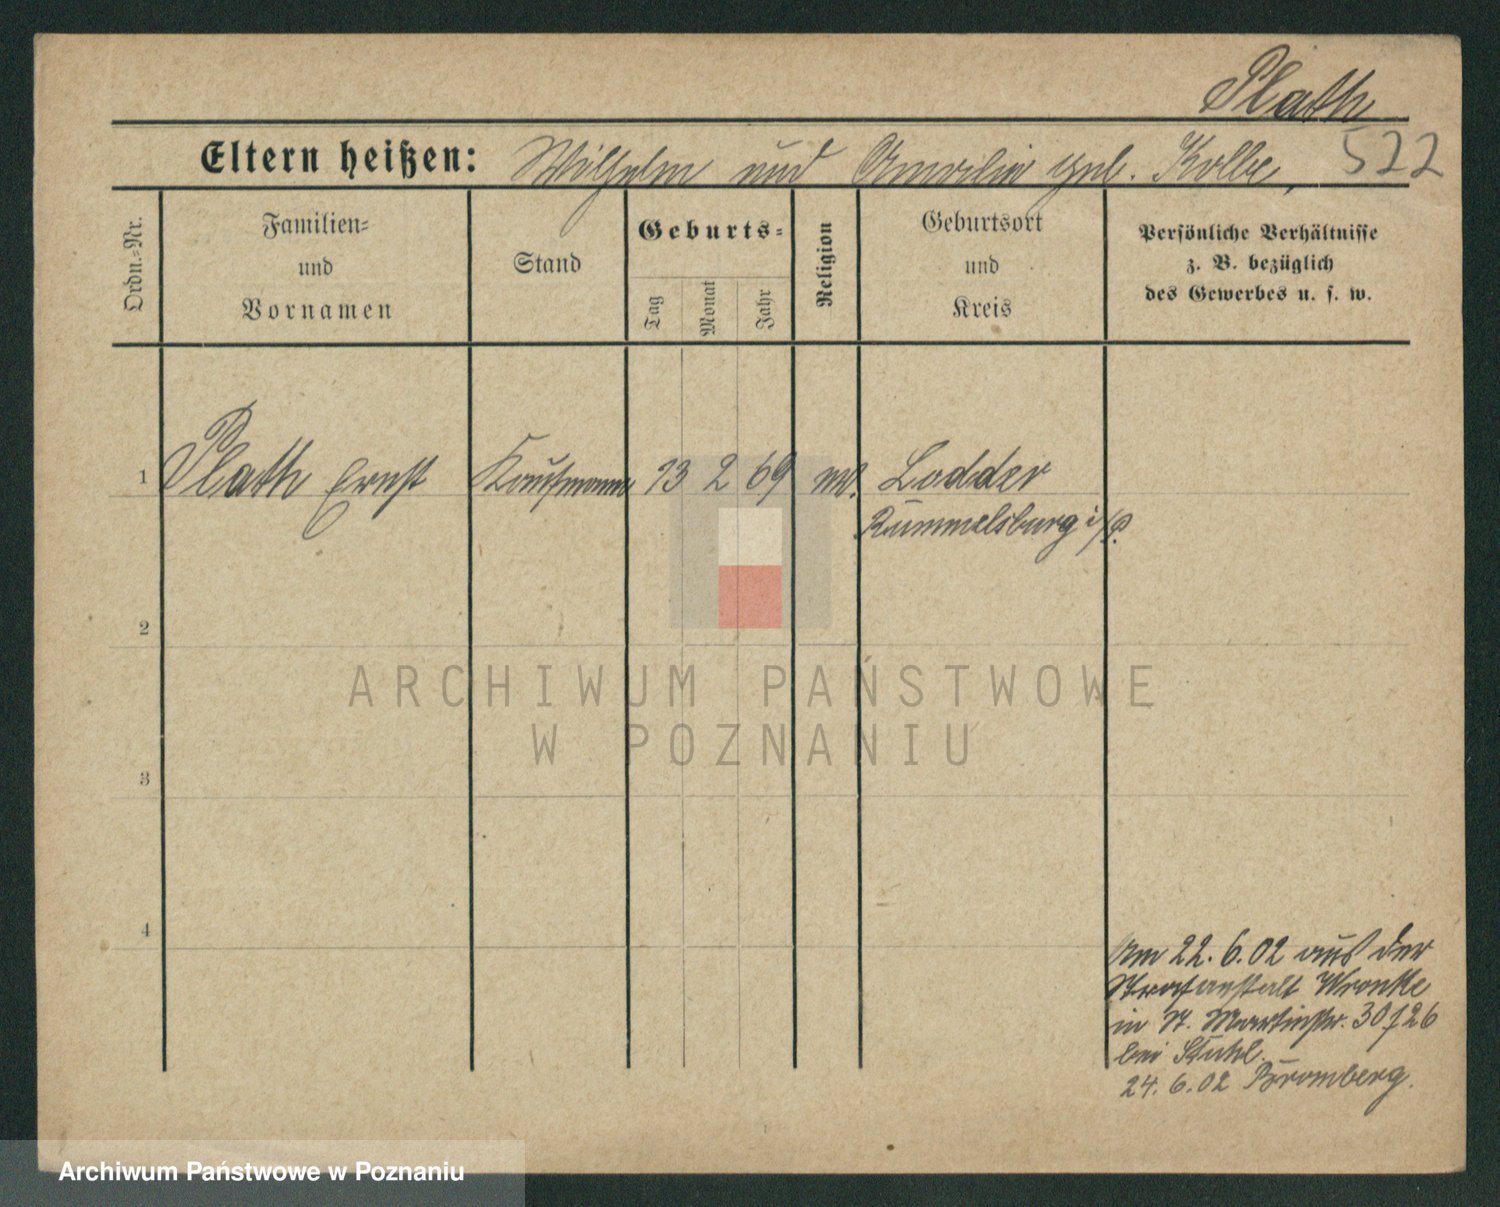 Plath
Eltern heißen: Wilhelm und Amalie geb. Kolbe, 522
Ordn.-Nr.
Familien-
und
Vornamen
Stand
Geburts-
Tag
Monat
Jahr
Religion
Geburtsort
und
Kreis
Persönliche Verhältnisse
z. B. bezüglich
des Gewerbes u. s. w.
1 Plath Ernst Kaufmann 13 2 69 ev. Lodder
Rummelsburg i/P.
2
ARCHIWUM PAŃSTWOWE
W POZNANIU
3
4
Am 22. 6. 02 aus der
Strafanstalt Wronke
in St. Martinstr. 30/26
bei Stuhl.
24. 6. 02 Bromberg.
Archiwum Państwowe w Poznaniu